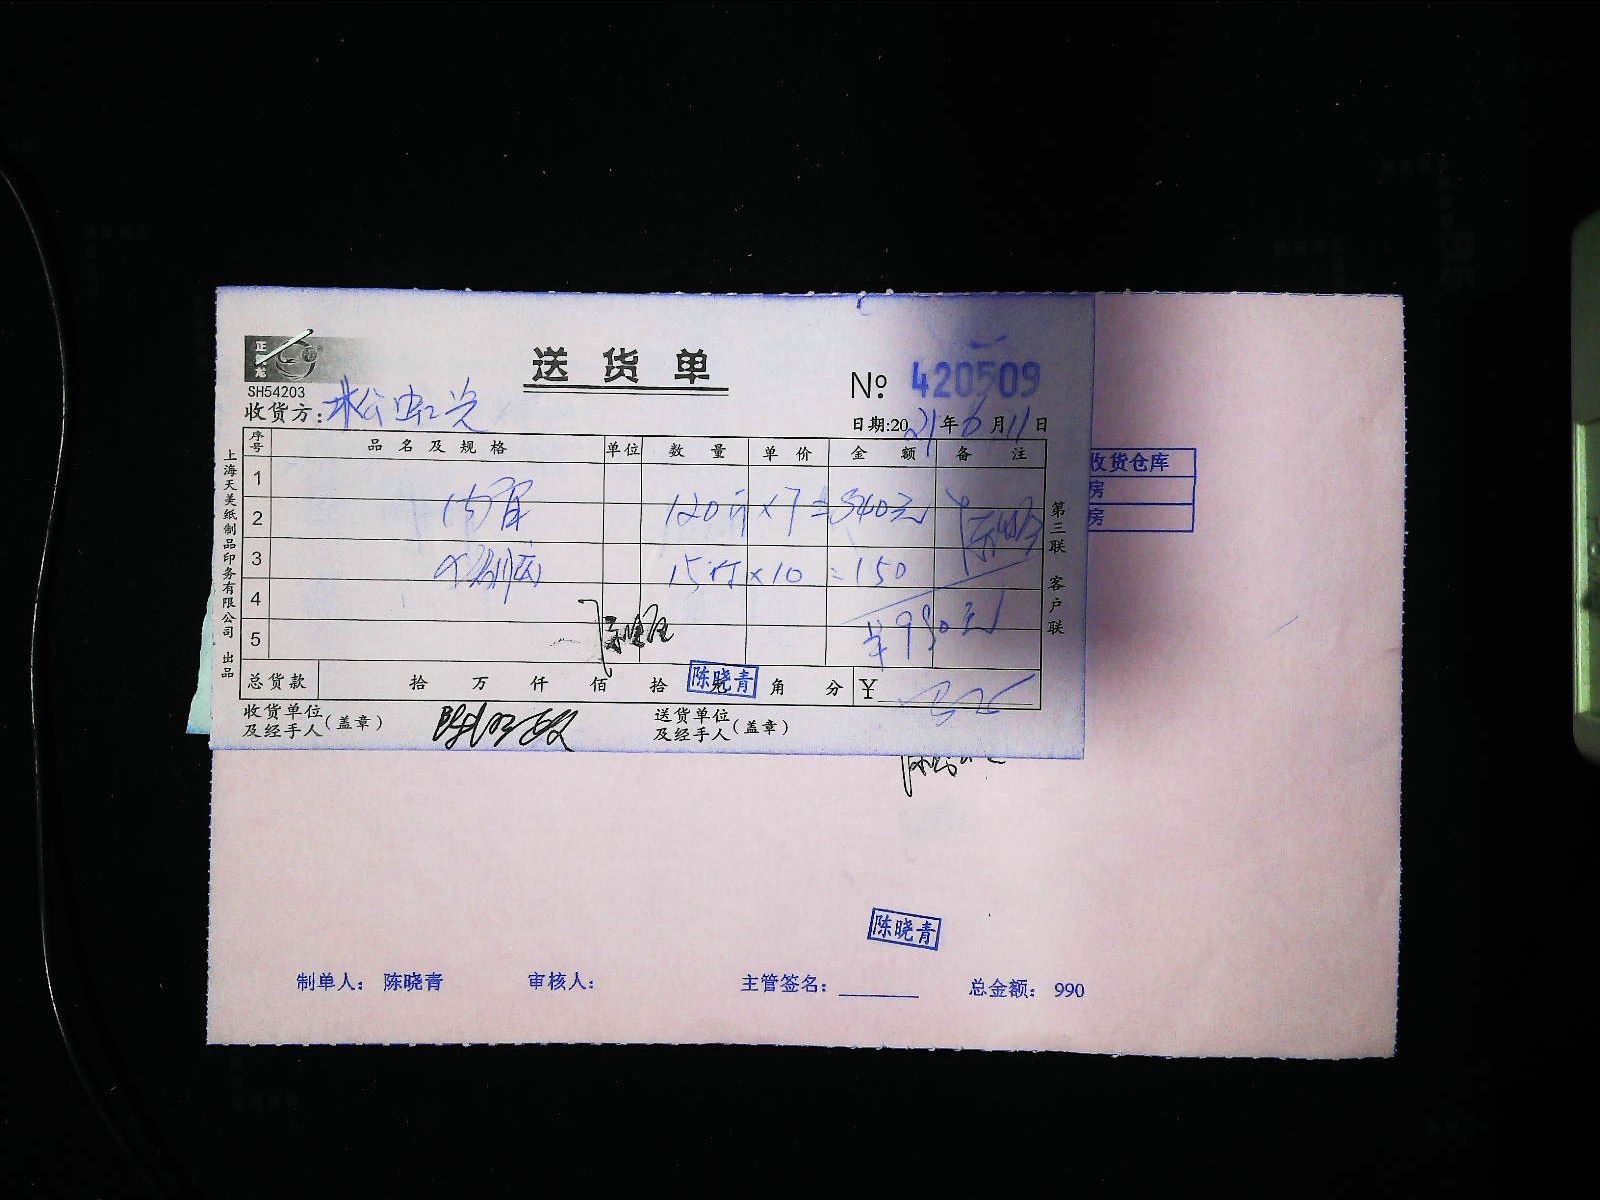 SH54203
送货单
№ 420509
收货方:松江
日期:2021年6月11日
序号 品名及规格 单位 数量 单价 金额 备注
1
2 120 × 7 = 840元
3 15 × 10 = 150
4
5 ¥990元
总货款 拾 万 仟 佰 拾 角 分 ¥
陈晓青
收货单位及经手人(盖章)
送货单位及经手人(盖章)
上海天美纸制品印务有限公司 出品
第三联 客户联
收货仓库
房
房
陈晓青
制单人: 陈晓青 审核人: 主管签名: 总金额: 990